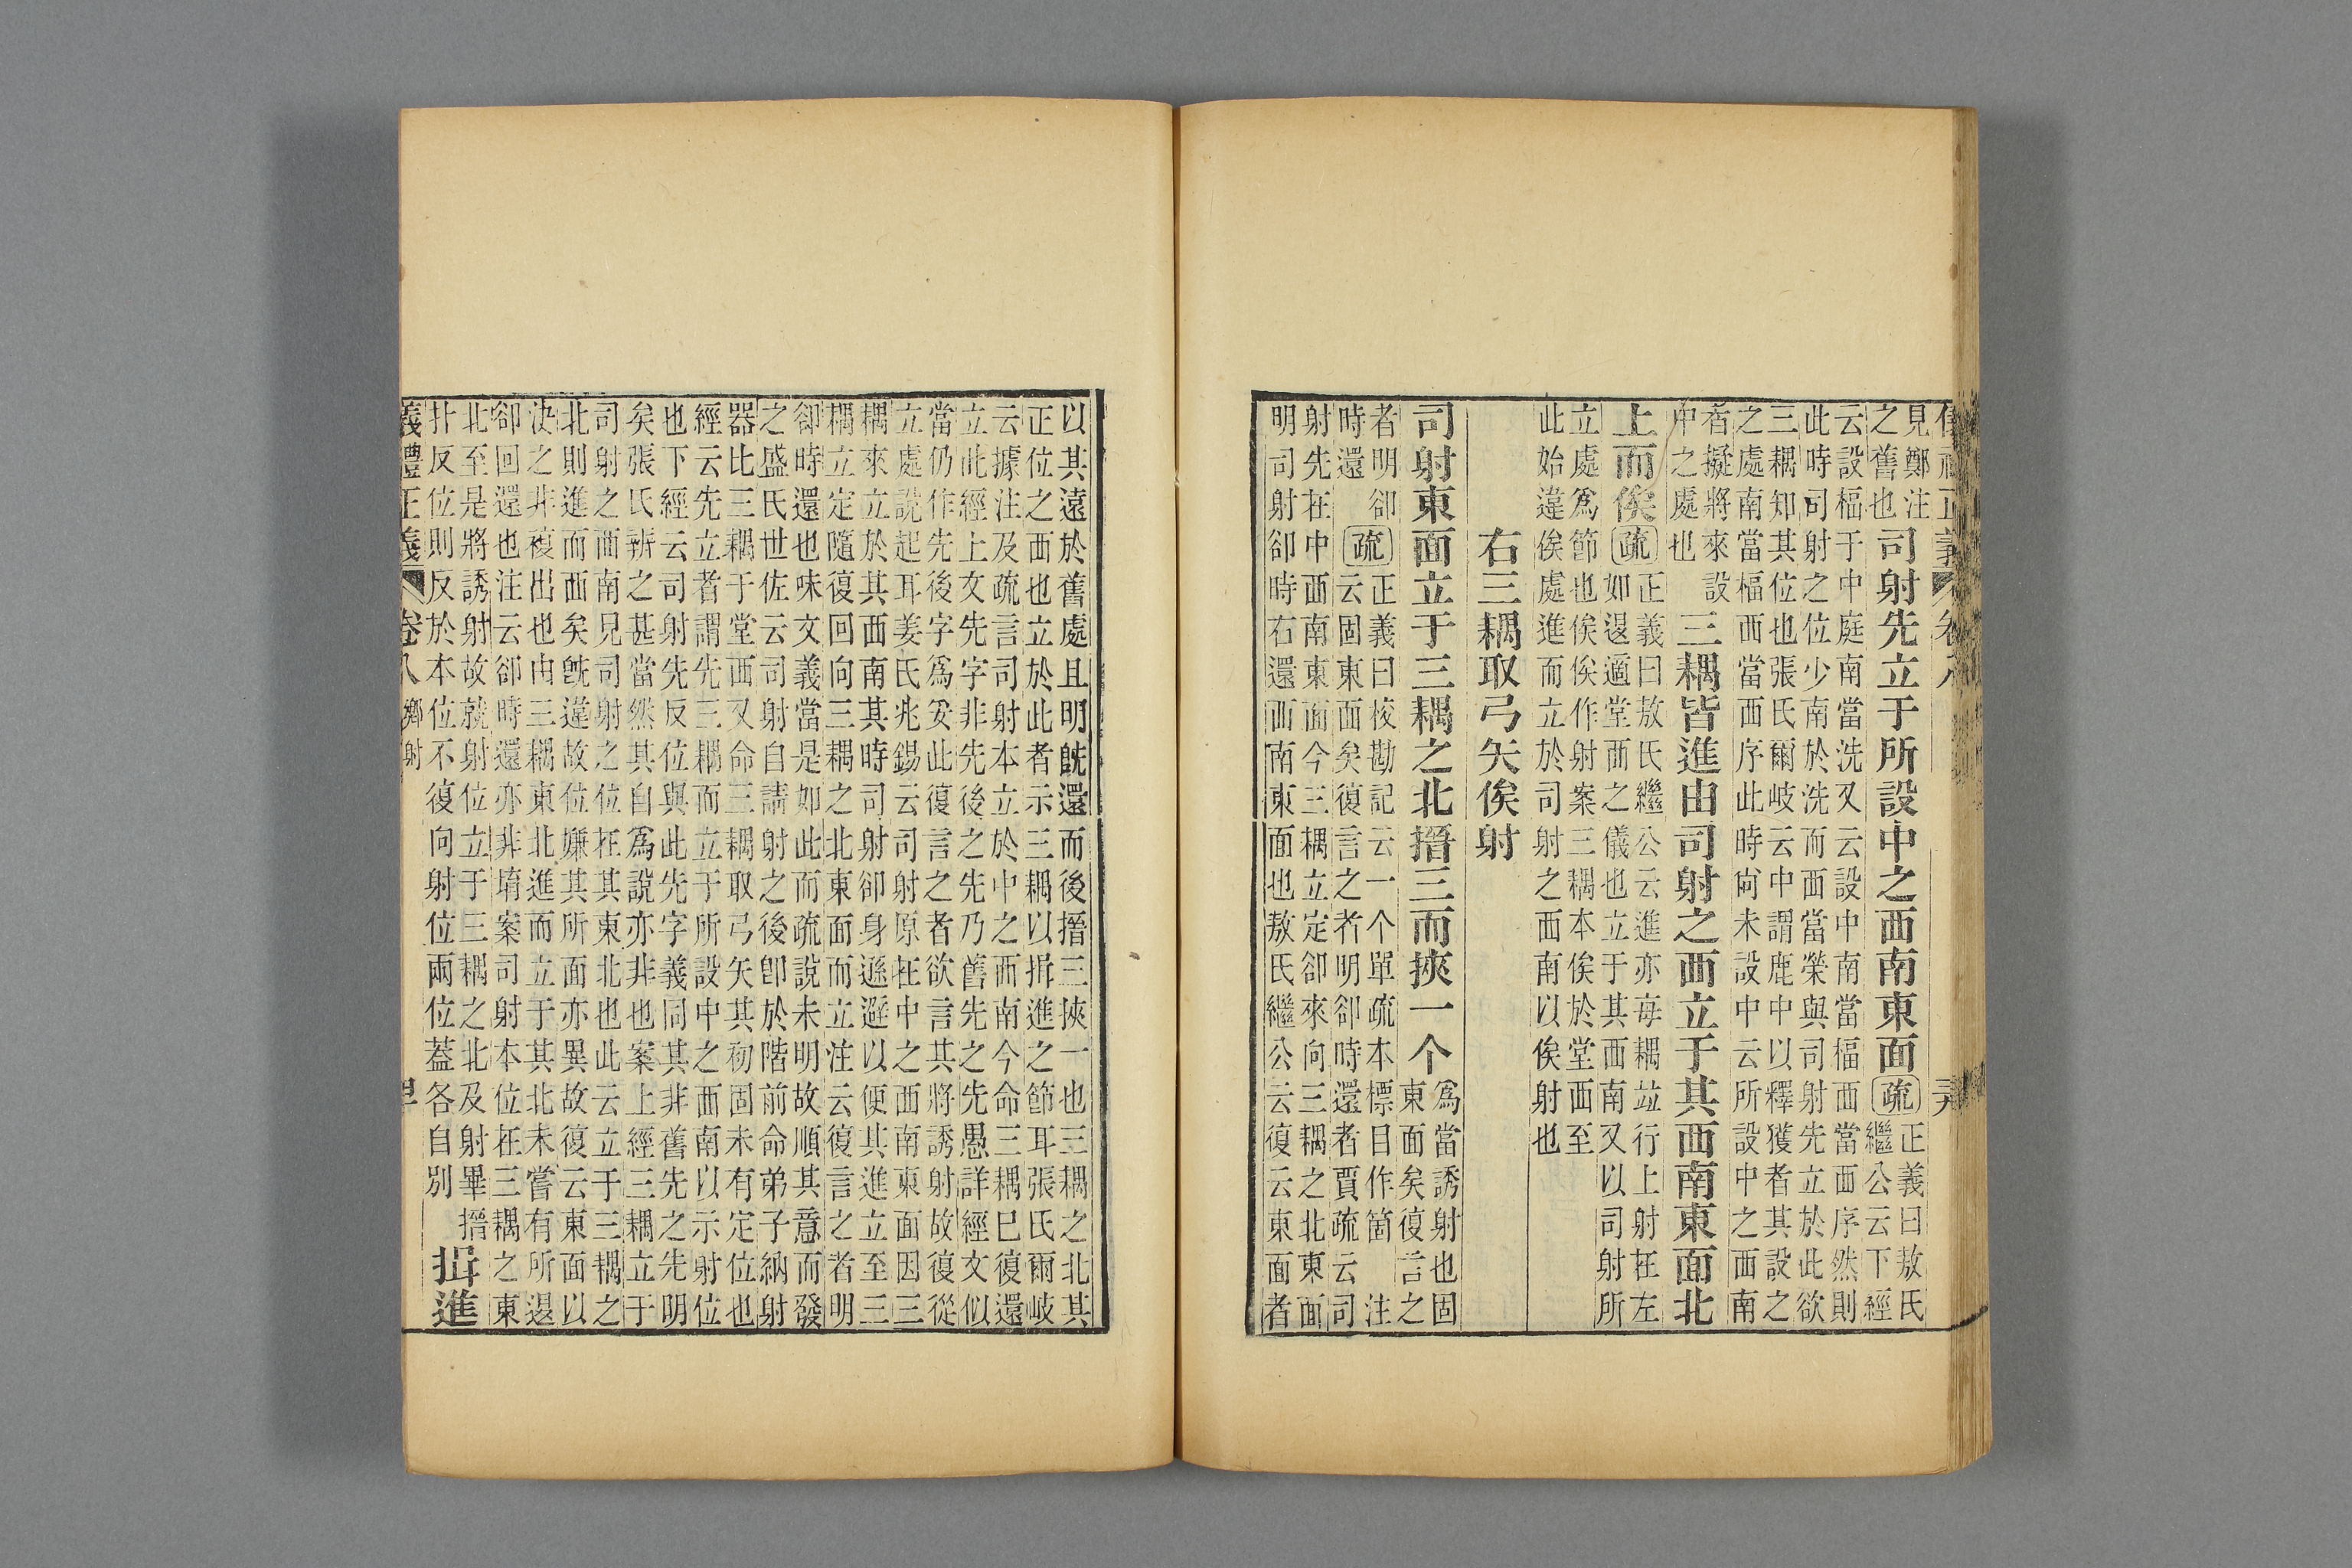 見鄭注
之舊也
司射先立于所設中之西南東面
疏
正義曰敖氏
繼公云下經
云設楅于中庭南當洗又云設中南當楅西當西序然則
此時司射之位少南於洗而西當榮與司射先立於此欲
三耦知其位也張氏爾岐云中謂鹿中以釋獲者其設之
之處南當楅西當西序此時尙未設中云所設中之西南
者擬將來設
中之處也
三耦皆進由司射之西立于其西南東面北
上而俟
疏
正義曰敖氏繼公云進亦每耦竝行上射在左
如退適堂西之儀也立于其西南又以司射所
立處爲節也俟俟作射案三耦本俟於堂西至
此始違俟處進而立於司射之西南以俟射也
右三耦取弓矢俟射
司射東面立于三耦之北搢三而挾一个
爲當誘射也固
東面矣復言之
者明卻
時還
疏
正義曰校勘記云一个單疏本標目作箇 注
云固東面矣復言之者明卻時還者賈疏云司
射先在中西南東面今三耦立定卻來向三耦之北東面
明司射卻時右還西南東面也敖氏繼公云復云東面者
以其遠於舊處且明旣還而後搢三挾一也三耦之北其
正位之西也立於此者示三耦以揖進之節耳張氏爾岐
云據注及疏言司射本立於中之西南今命三耦巳復還
立此經上文先字非先後之先乃舊先之先愚詳經文似
當仍作先後字爲妥此復言之者欲言其將誘射故復從
立處說起耳姜氏兆錫云司射原在中之西南東面因三
耦來立於其西南其時司射卻身遜避以便其進立至三
耦立定隨復回向三耦之北東面而立注云復言之者明
卻時還也味文義當是如此而疏說未明故順其意而發
之盛氏世佐云司射自請射之後卽於階前命弟子納射
器比三耦于堂西又命三耦取弓矢其初固未有定位也
經云先立者謂先三耦而立于所設中之西南以示射位
也下經云司射先反位與此先字義同其非舊先之先明
矣張氏辨之甚當然其自爲說亦非也案上經三耦立于
司射之西南見司射之位在其東北也此云立于三耦之
北則進而西矣旣違故位嫌其所面亦異故復云東面以
決之非複出也由三耦東北進而立于其北未嘗有所退
卻回還也注云卻時還亦非堉案司射本位在三耦之東
北至是將誘射故就射位立于三耦之北及射畢搢
扑反位則反於本位不復向射位兩位蓋各自別
揖進
義禮正義 卷八 鄉射